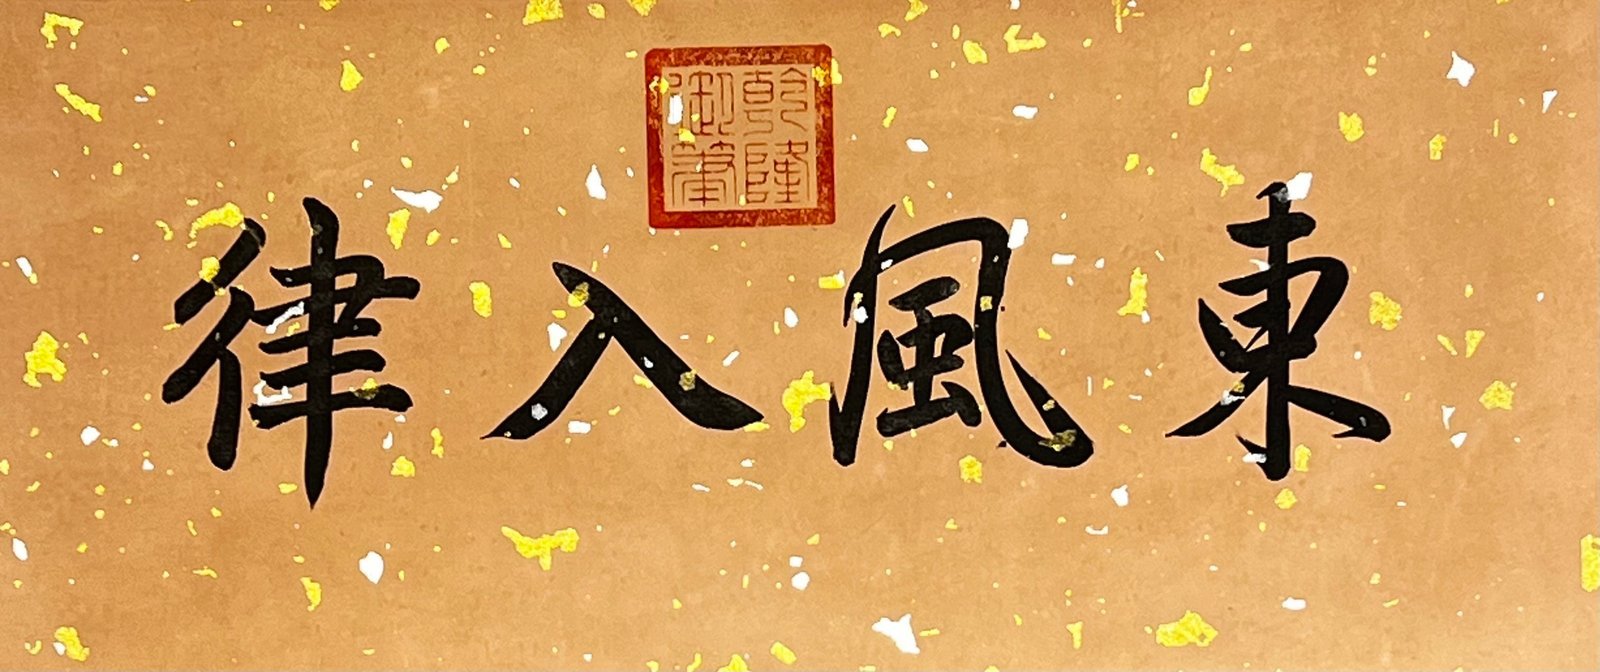 東風入律
乾隆
御筆